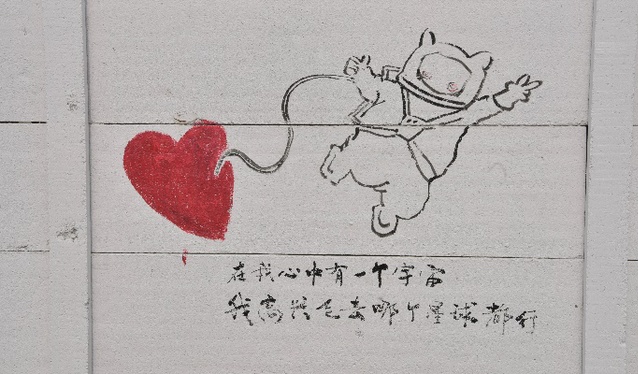 在我心中有一个宇宙
我高兴飞去哪个星球都行